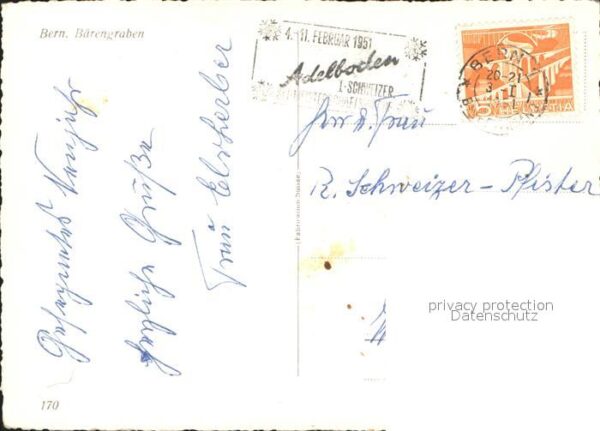 Bern. Bärengraben
4.-11. FEBRUAR 1951
Adelboden
SCHWEIZER
BERN
20-21
3. I
5 HELVETIA
Herr u. Frau
R. Schweizer-Pfister
Gesegnetes Neujahr
herzliche Grüße
Frau
privacy protection
Datenschutz
170